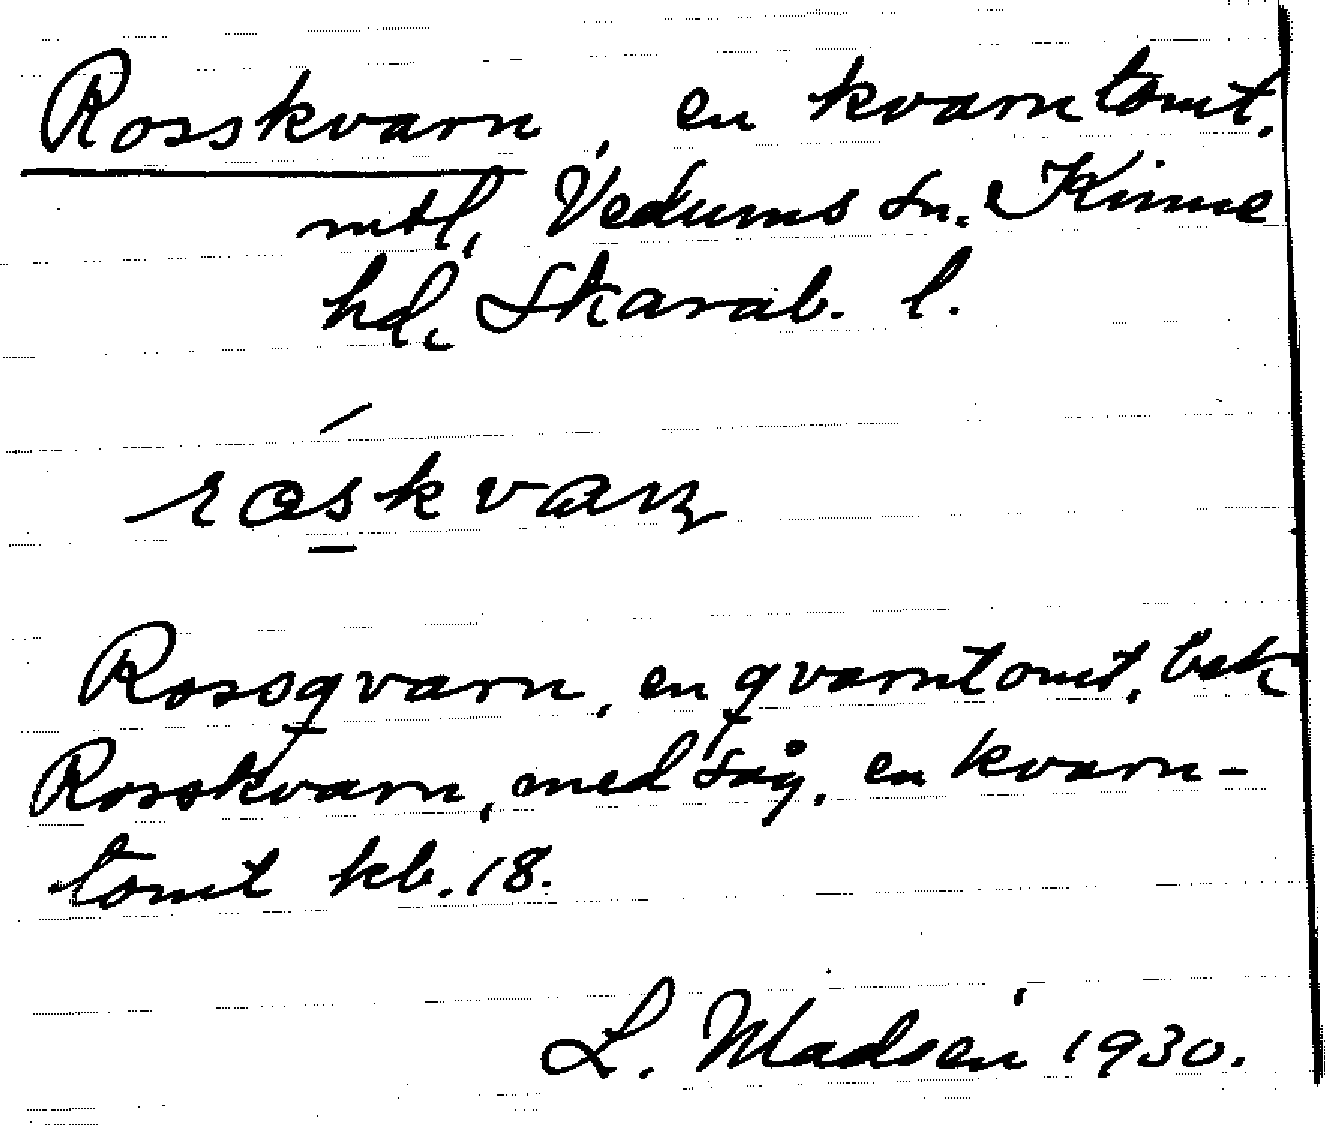 Rosskvarn, en kvarntomt.
mtl, Vedums sn. Kinne
hd. Skarab. l.
róskvaɳ
Rossqvarn, en qvarntomt,
Rosskvarn, med såg, en kvarn-
tomt kb. 18.
L. Madsén 1930.